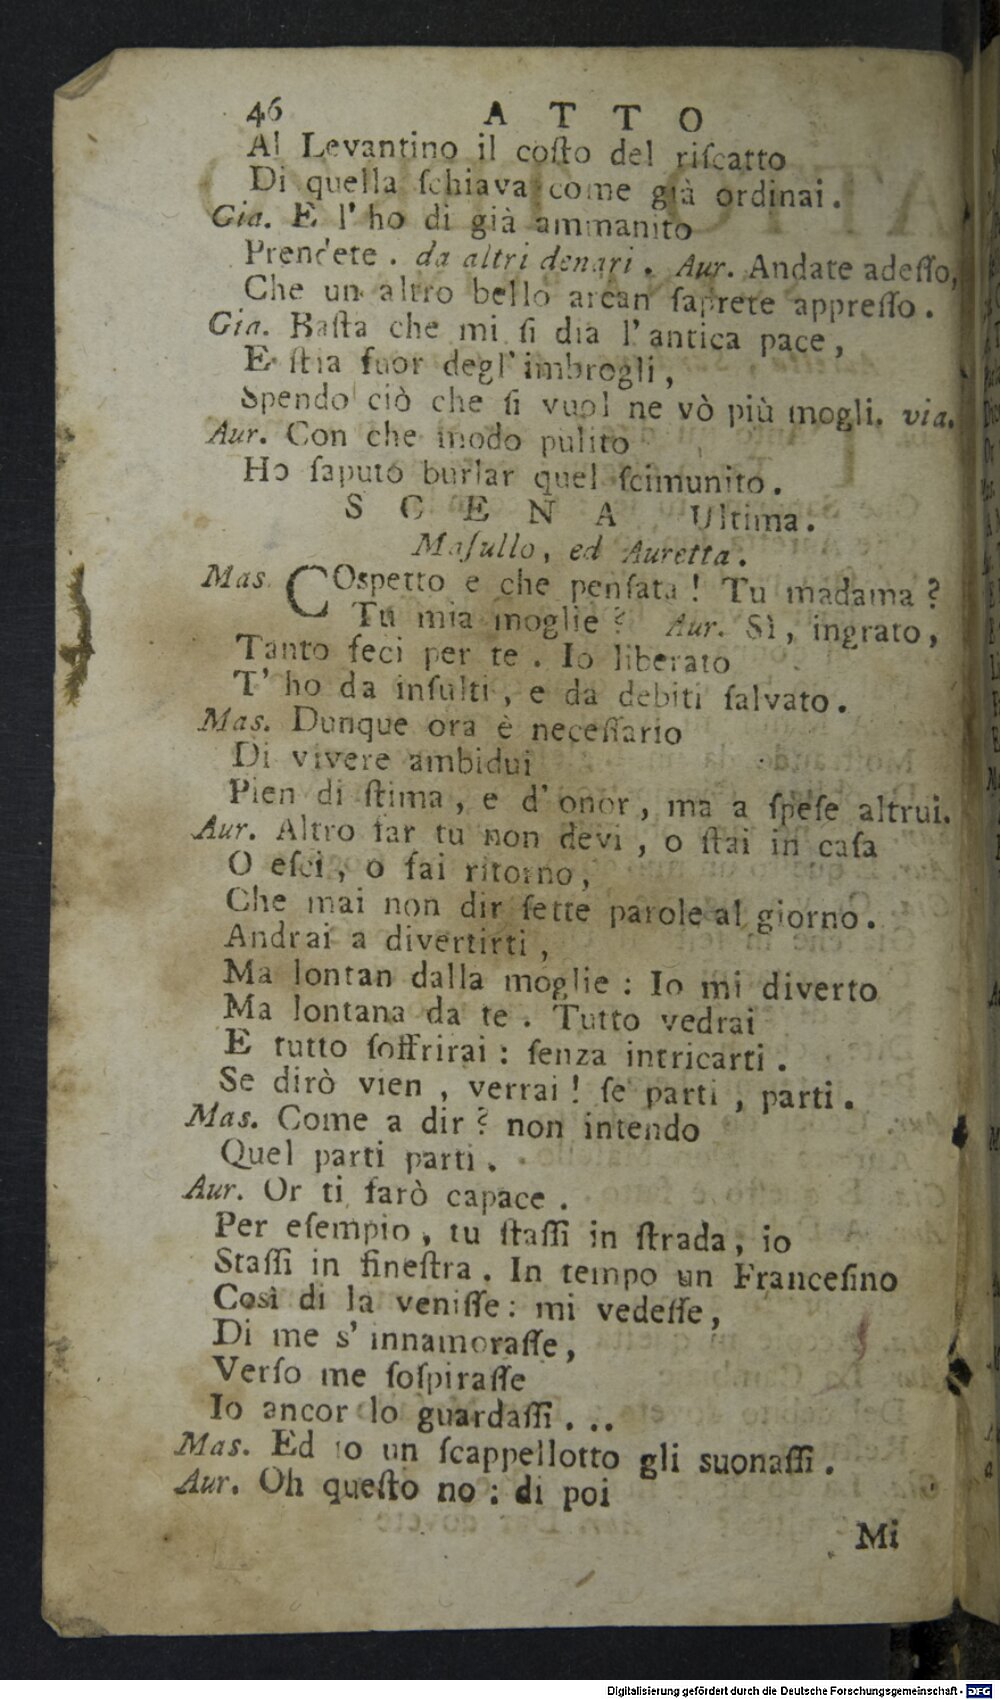 46 ATTO
Al Levantino il coſto del riſcatto
Di quella ſchiava come già ordinai.
Gia. E l' ho di già ammanito
Prendete. da altri denari. Aur. Andate adeſſo,
Che un altro bello arcan ſaprete appreſſo.
Gia. Baſta che mi ſi dia l' antica pace,
E ſtia fuor degl' imbrogli,
Spendo ciò che ſi vuol ne vò più mogli. via.
Aur. Con che modo pulito
Ho ſaputo burlar quel ſcimunito.
SCENA Ultima.
Maſullo, ed Auretta.
Mas. COſpetto e che penſata! Tu madama?
Tu mia moglie? Aur. Sì, ingrato,
Tanto feci per te. Io liberato
T' ho da inſulti, e da debiti ſalvato.
Mas. Dunque ora è neceſſario
Di vivere ambidui
Pien di ſtima, e d' onor, ma a ſpeſe altrui.
Aur. Altro far tu non devi, o ſtai in caſa
O eſci, o fai ritorno,
Che mai non dir ſette parole al giorno.
Andrai a divertirti,
Ma lontan dalla moglie: Io mi diverto
Ma lontana da te. Tutto vedrai
E tutto ſoffrirai: ſenza intricarti.
Se dirò vien, verrai! ſe parti, parti.
Mas. Come a dir? non intendo
Quel parti parti.
Aur. Or ti farò capace.
Per eſempio, tu ſtaſſi in ſtrada, io
Staſſi in fineſtra. In tempo un Franceſino
Così di la veniſſe: mi vedeſſe,
Di me s' innamoraſſe,
Verſo me ſoſpiraſſe
Io ancor lo guardaſſi...
Mas. Ed io un ſcappellotto gli suonaſſi.
Aur. Oh queſto no: di poi
Mi
Digitalisierung gefördert durch die Deutsche Forschungsgemeinschaft - DFG